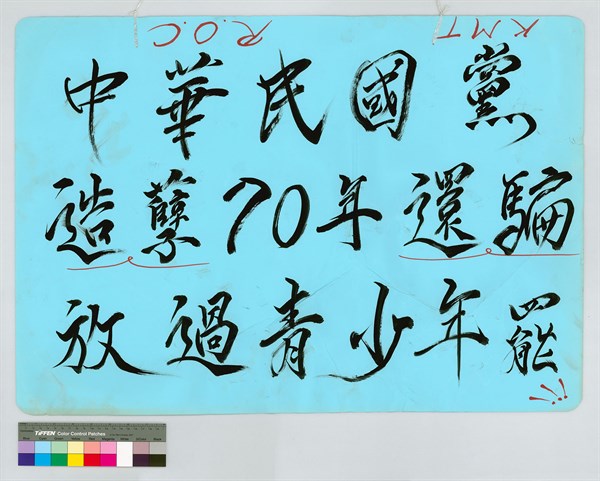 R.O.C KMT
中華民國黨
造孽70年還騙
放過青少年罷!!
TIFFEN Color Control Patches